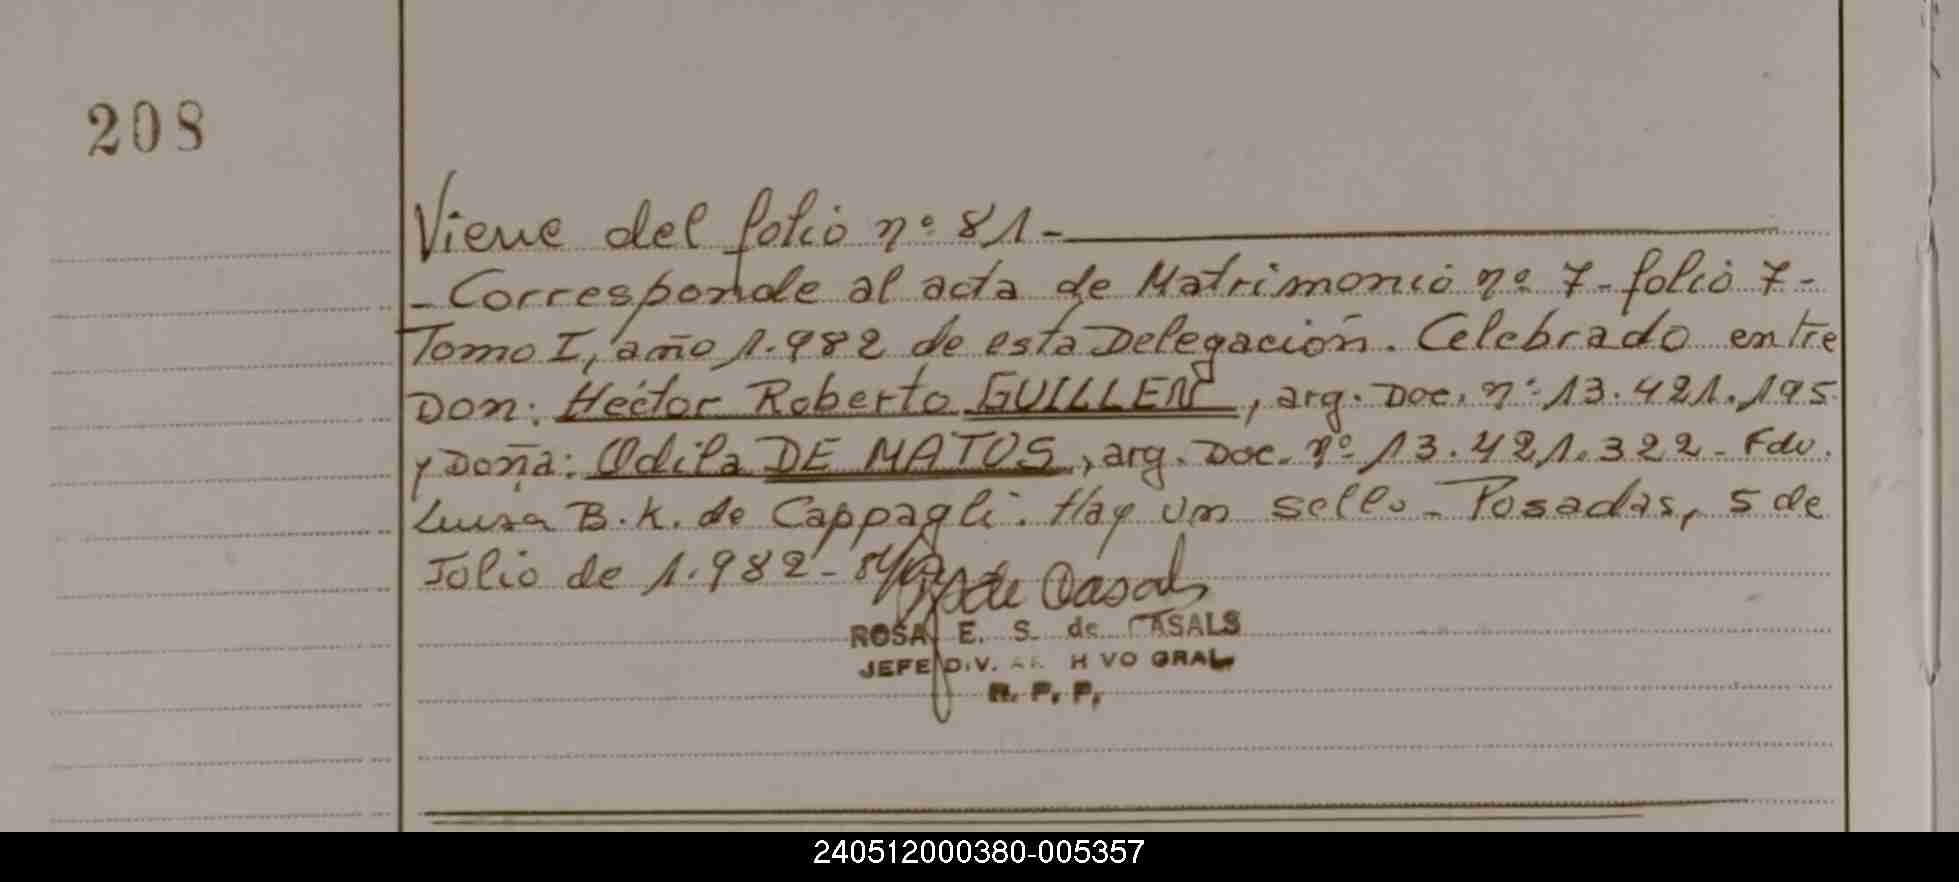 208
Viene del folio nº 81-
- Corresponde al acta de Matrimonio nº 7- folio 7-
Tomo I, año 1.982 de esta Delegación. Celebrado entre
Don: Héctor Roberto GUILLEN, arg. Doc. nº 13.421.195
y Doña: Odila DE MATOS, arg. Doc. nº 13.421.322- Fdo.
Luisa B.K. de Cappagli. Hay un sello- Posadas, 5 de
Julio de 1.982-
de Casals
ROSA E. S. de CASALS
JEFE DIV. AR H VO GRAL
R. P. P.
240512000380-005357